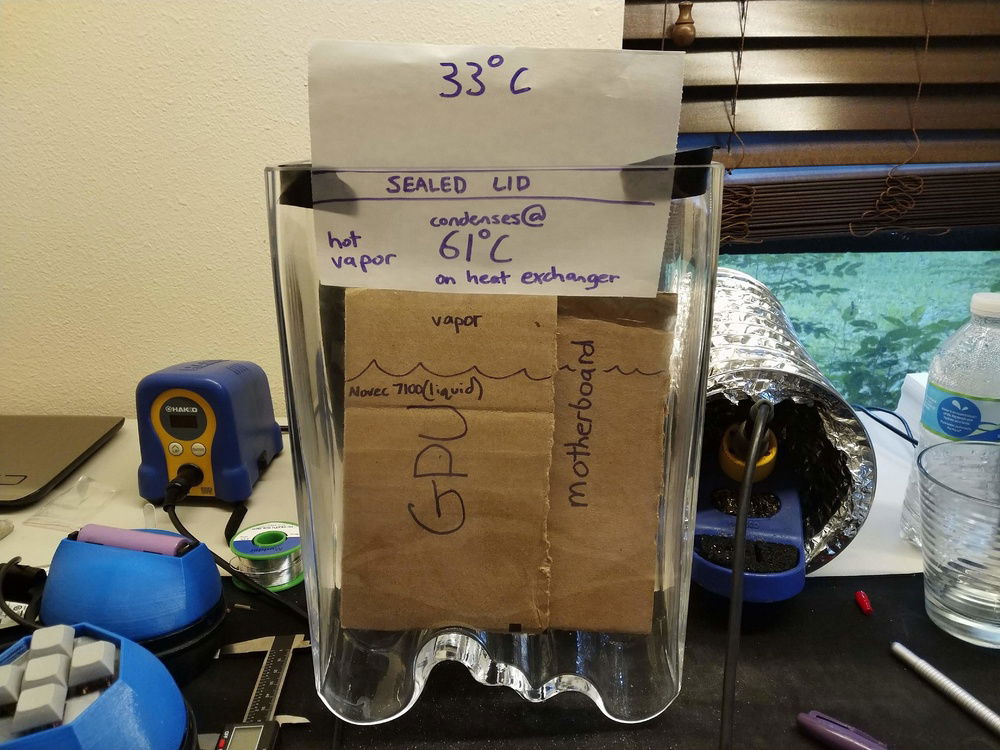 33°C
SEALED LID
condenses@
hot
vapor
61°C
on heat exchanger
vapor
Novec 7100(liquid)
GPU
motherboard
HAKKO